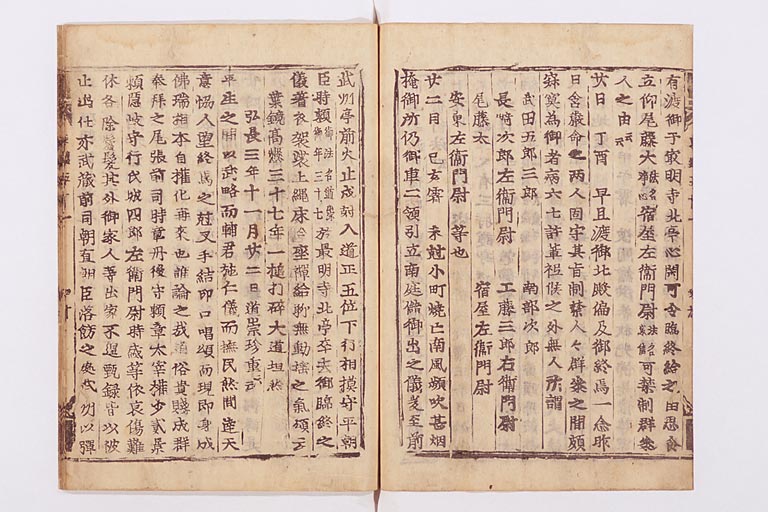 有渡御于最明寺北亭心閑可令臨終給之由思食
立仰尾藤太 宿屋左衛門尉 可禁制群参
人之由云云
廿日 丁酉 早旦渡御北殿偏及御終焉一念昨
日含厳命之両人固守其旨制禁人々群参之間頗
寂寞為御看病六七許輩祗候之外無人所謂
武田五郎三郎 南部次郎
長崎次郎左衛門尉 工藤三郎右衛門尉
尾藤太 宿屋左衛門尉
安東左衛門尉等也
廿二日 己亥霽 未剋小町焼亡南風頻吹甚烟
掩御所仍御車二領引立南庭備御出之儀爰至前
武州亭前火止戌刻入道正五位下行相摸守平朝
臣時頼 御法名道崇御年三十七 於最明寺北亭卒去御臨終之
儀着衣袈裟上縄床令座禅給聊無動揺之気頌云
業鏡高懸三十七年一槌打砕大道坦然
弘長三年十一月廿二日道崇珍重云云
平生之間以武略而輔君施仁儀而撫民然間達天
意協人望終焉之剋叉手結印口唱頌而現即身成
仏瑞相本自権化再来也誰論之哉道俗貴賤成群
奉拝之尾張前司時章丹後守頼章太宰権少弐景
頼隠岐守行氏城四郎左衛門尉時盛等依哀傷難
休各除鬢髪其外御家人等出家不遑甄録皆以被
止出仕亦武蔵前司朝 臣落餝之